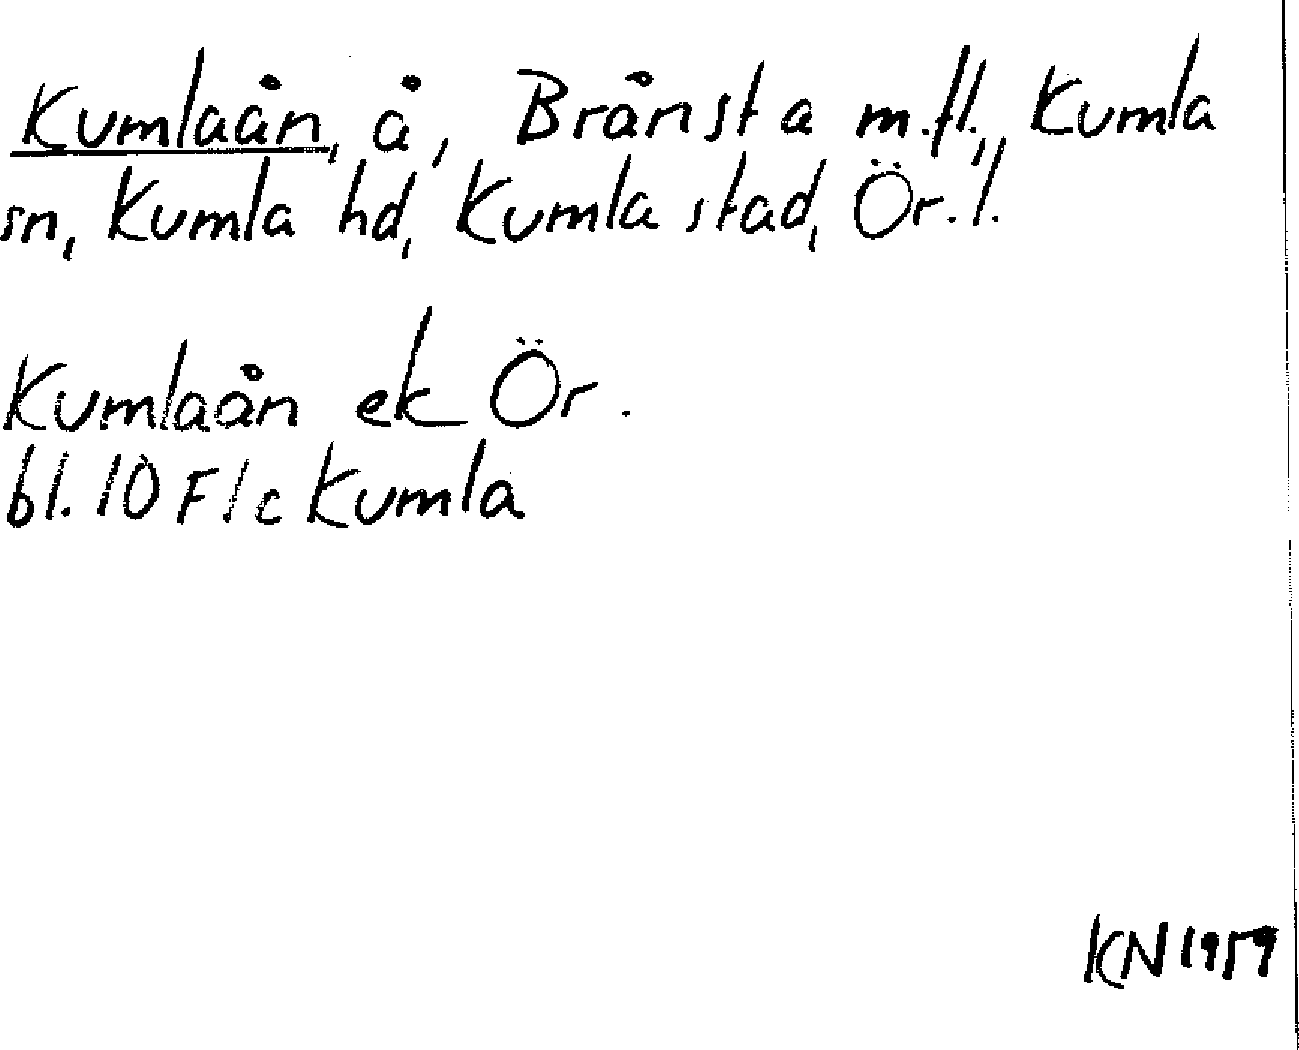 Kumlaån, å, Brånsta m.fl., Kumla
sn, Kumla hd, Kumla stad, Ör.l.
Kumlaån ek Ör.
bl. 10 F/c Kumla
KN 1959